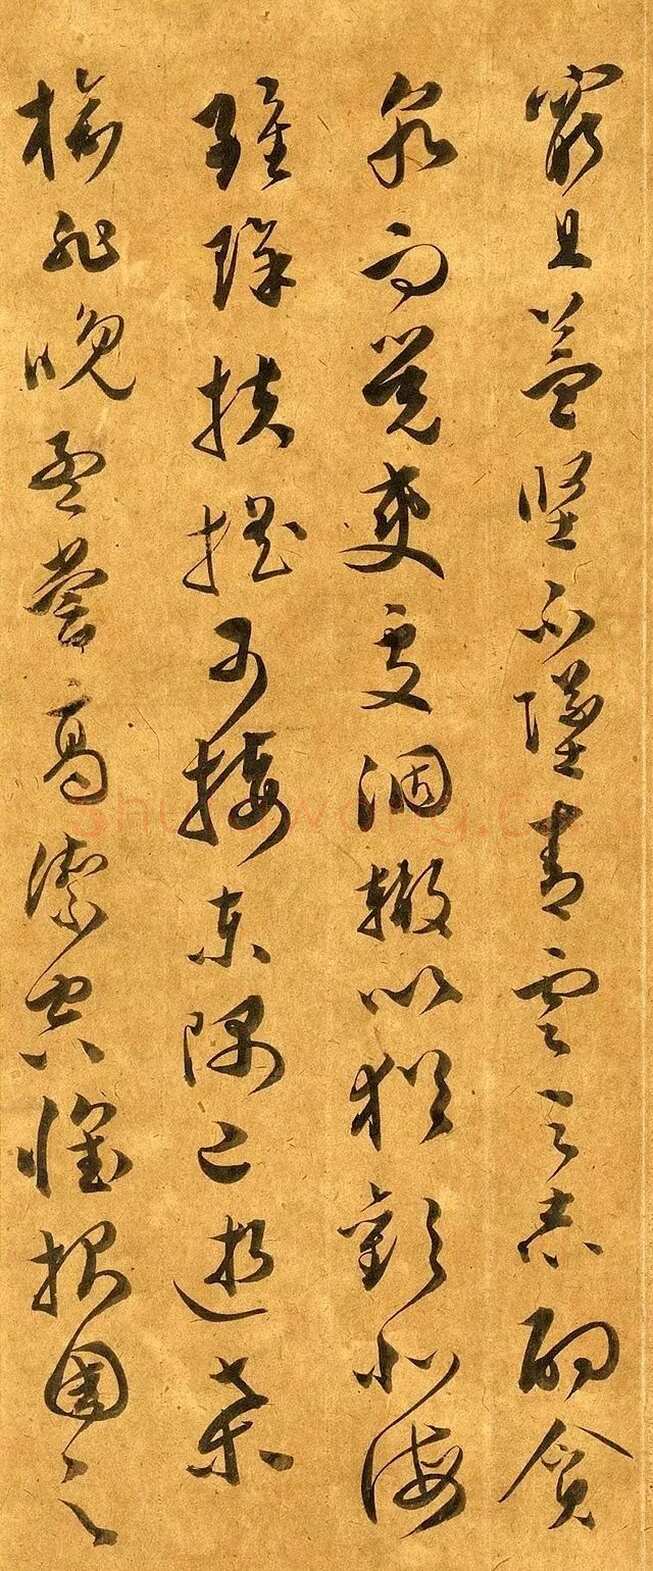 窮且益堅不墜青雲之志酌貪
泉而覺爽處涸轍以猶歡北海
雖賒扶搖可接東隅已逝桑
榆非晚孟嘗高潔空懷報國之